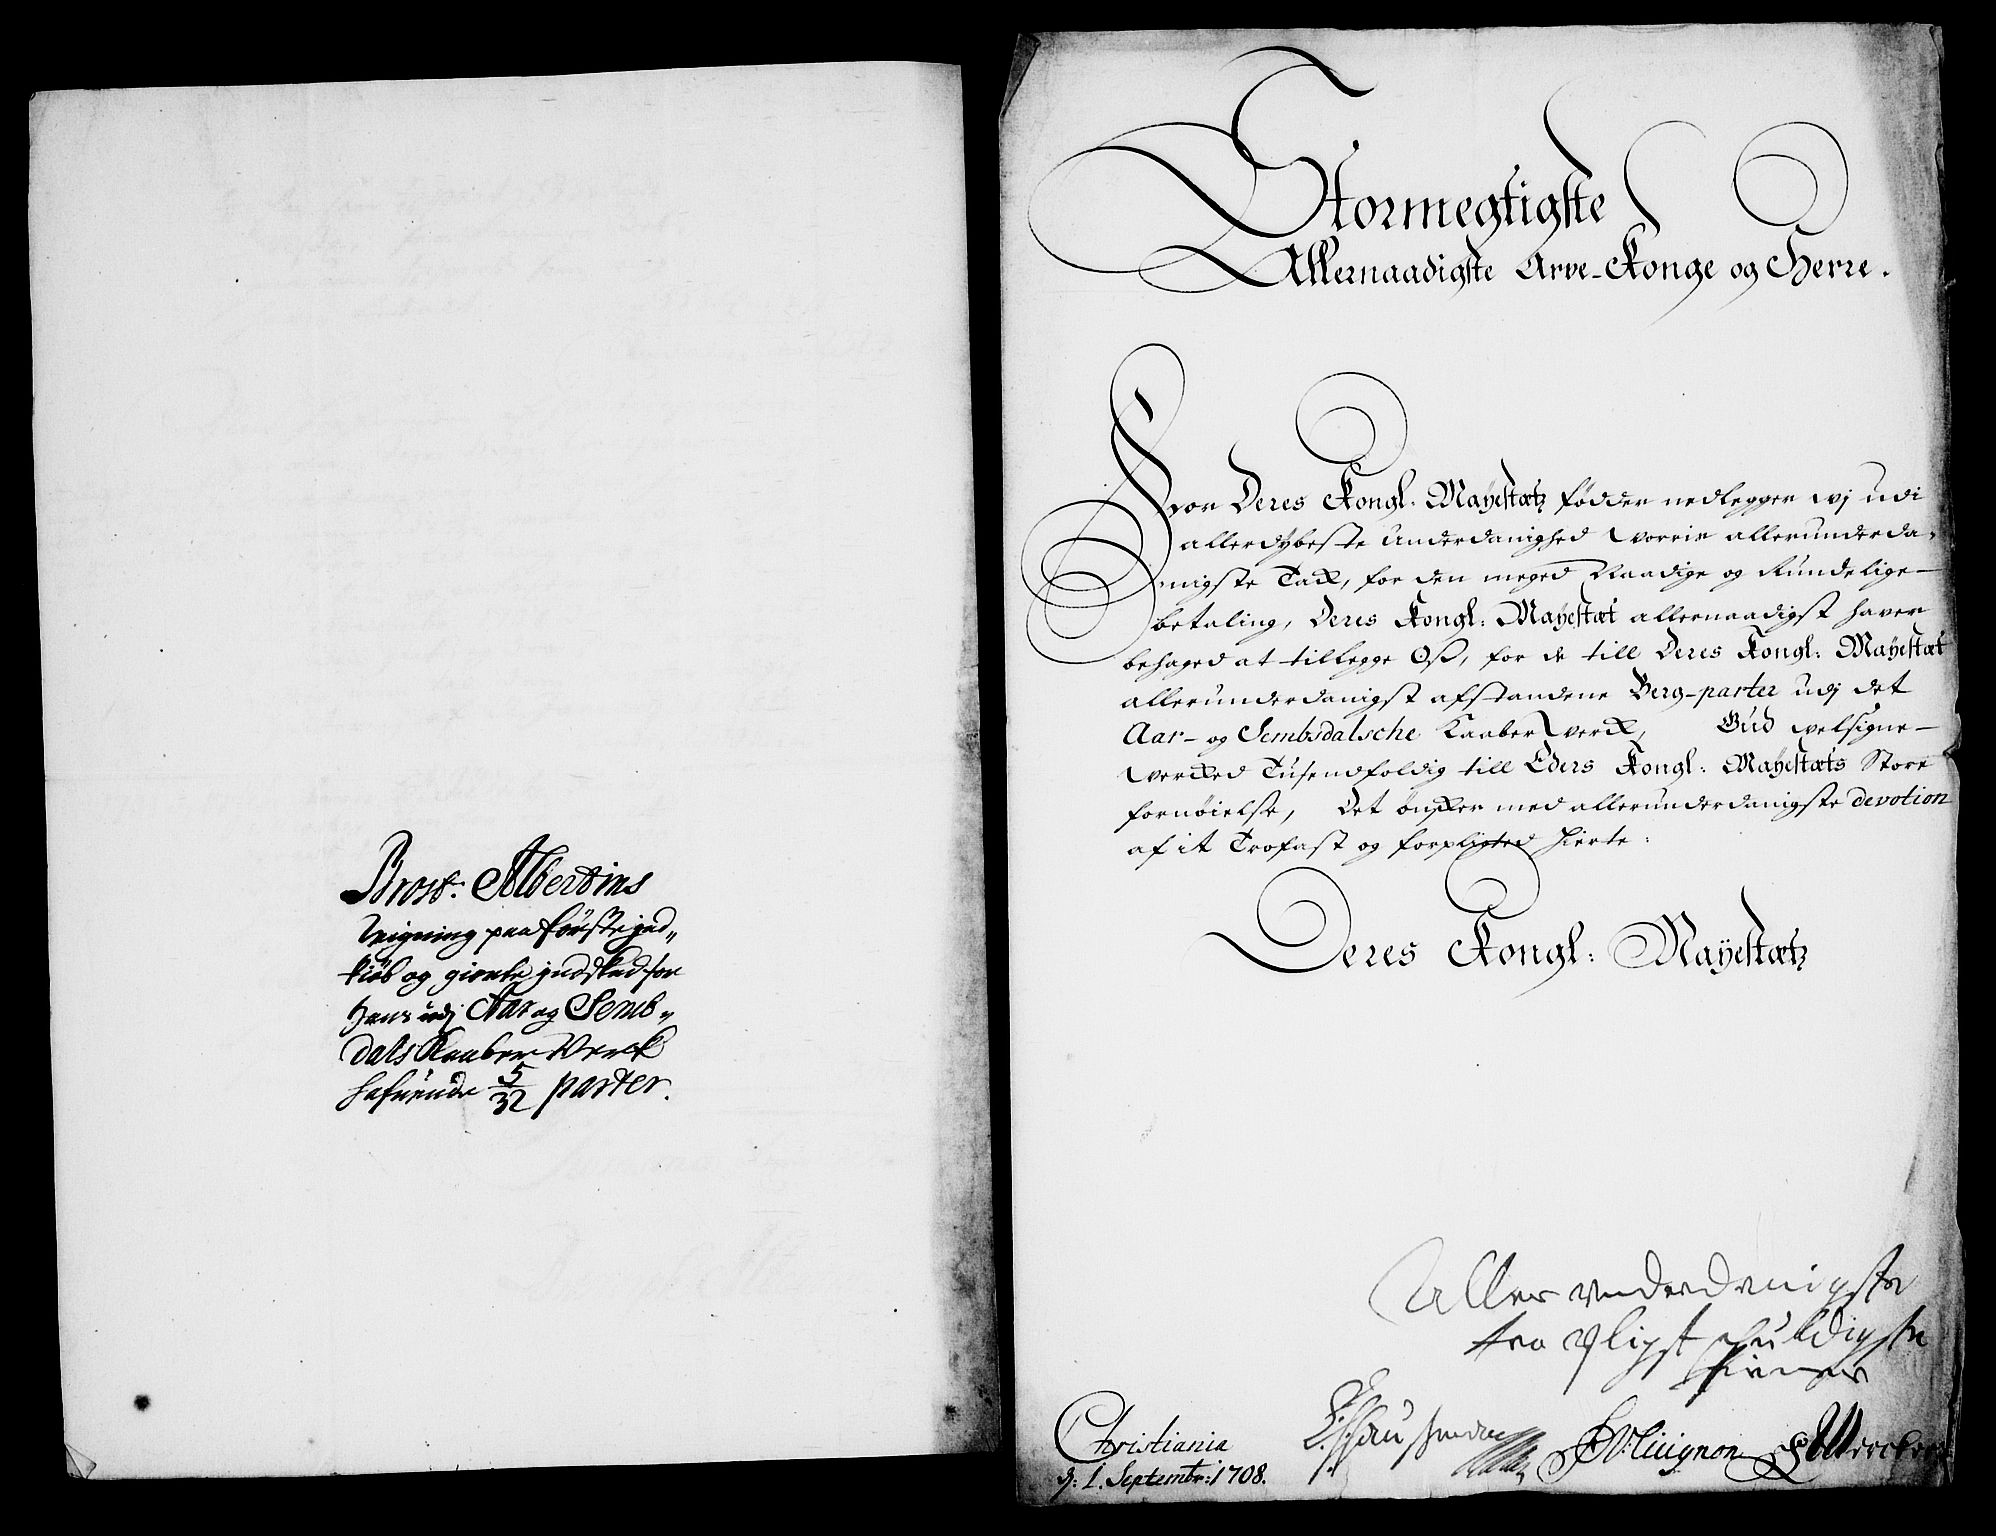 Prost: Albertins
Reigning paa første ind„
kiøb og giorte indskud for
hans udj Aar og Semb„
dals Kaaber Verck
hafuende 5/32 parter.
Stormegtigste
Allernaadigste Arve-Konge og Herre.
For Deres Kongl: Mayestætz fødder nedlegger wj udi
allerdybeste underdanighed worris allerunderda„
nigste Tack, for den meged Naadige og Rundelige
betaling, Deres Kongl: Mayestæt allernaadigst haver
behaged at tillegge Oß, for de till Deres Kongl: Mayestæt
allerunderdanigst afstandene Berg-parter udj det
Aar- og Sembsdalsche Kaaber Werck, Gud welsigne
Wercked Tusendfoldig till Eders Kongl: Mayestæts Store
fornøielse, Det ønsker med allerunderdanigste devotion
af it Trofast og forpligted hierte:
Deres Kongl: Mayestætz
Aller underdanigste
tro pligst schuldigste
tienere
Christiania
d: 1. Septembr: 1708.